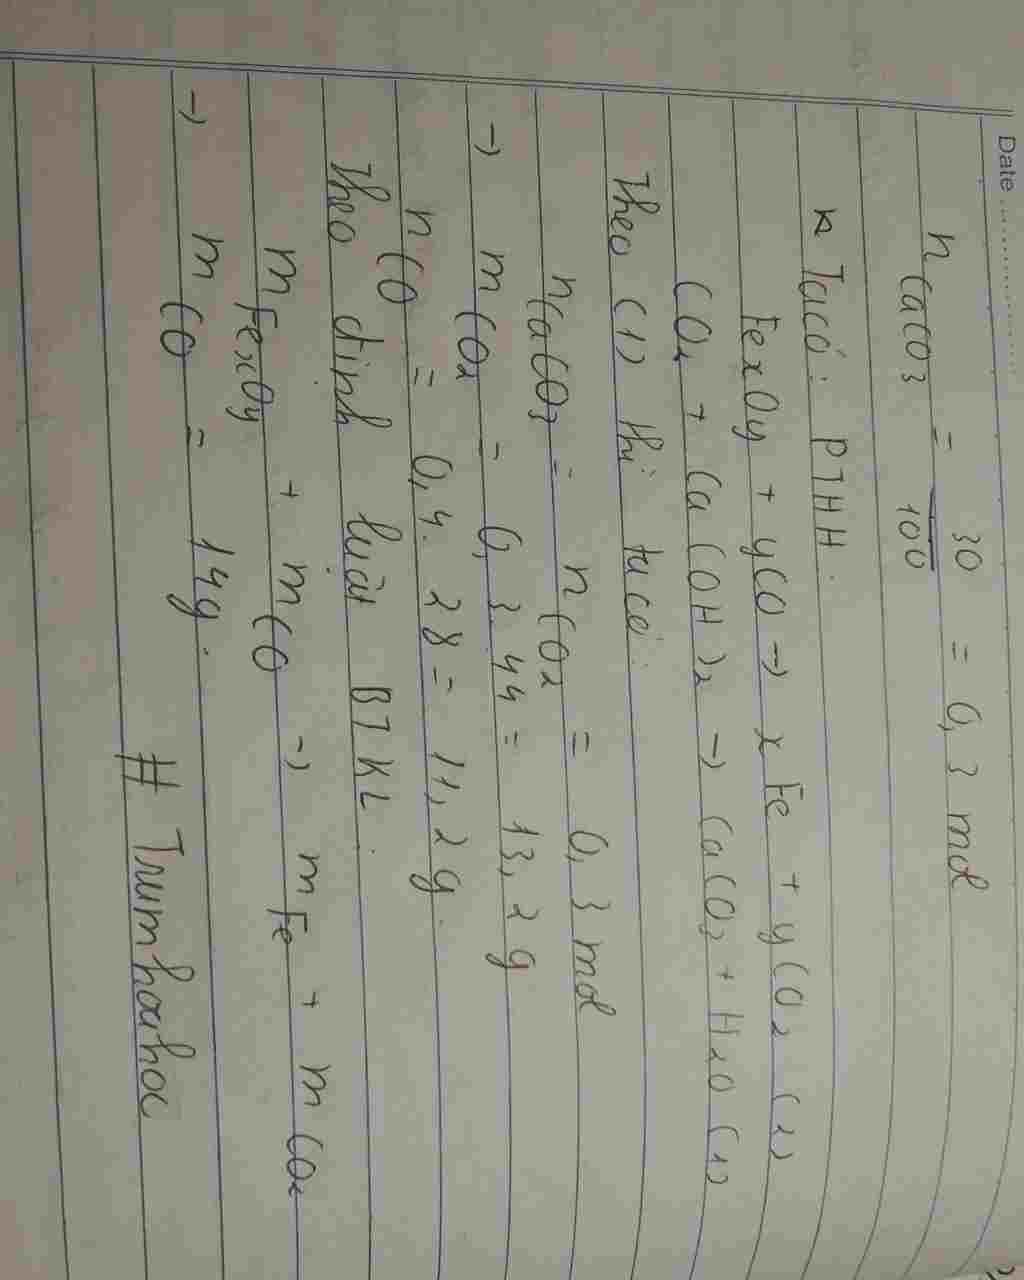 Date
n CaCO3 = 30/100 = 0,3 mol
* Ta có: PTHH.
FexOy + yCO → x Fe + yCO2 (2)
CO2 + Ca(OH)2 → CaCO3 + H2O (1)
Theo (1) thì ta có:
nCaCO3 = nCO2 = 0,3 mol
→ mCO2 = 0,3.44 = 13,2 g
nCO = 0,4.28 = 11,2 g.
Theo định luật BTKL.
mFexOy + mCO → mFe + mCO2
→ mCO = 14g.
# Trumhoahoc